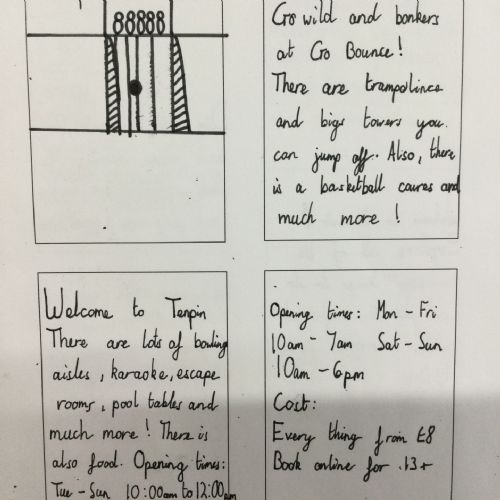 Go wild and bonkers
at Go Bounce!
There are trampolines
and bigs towers you
can jump off. Also, there
is a basketball coures and
much more!
Welcome to Tenpin
There are lots of bowling
aisles, karaoke, escape
rooms, pool tables and
much more! There is
also food. Opening times:
Tue - Sun 10:00am to 12:00pm
Opening times: Mon - Fri
10am - 7am Sat - Sun
10am - 6pm
Cost:
Every thing from £8
Book online for .13+